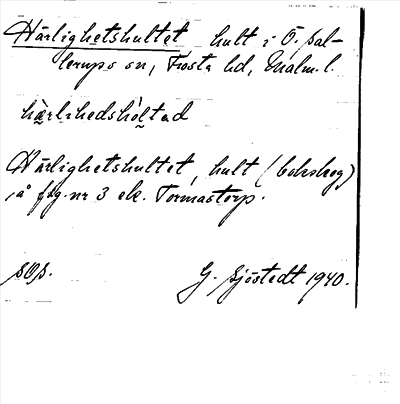 Härlighetshultet hult i Ö. Sal-
lerups sn, Frosta hd, Malm. l.
hä̱rlıhedshò̱ltad
Härlighetshultet, hult (bokskog)
å fbg. nr 3 ek. Tormastorp.
SOS. G. Sjöstedt 1940.